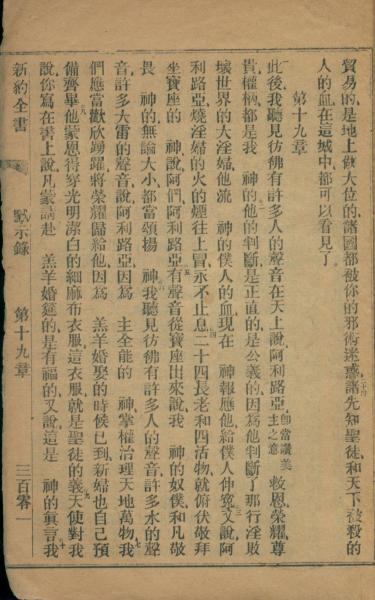 貿易的是地上做大位的諸國都被你的邪術迷惑諸先知聖徒和天下被殺的
人的血在這城中都可以看見了
第十九章
此後我聽見彷彿有許多人的聲音在天上說阿利路亞即當讚美主之意救恩榮耀尊
貴權柄都是我 神的他的判斷是正直的是公義的因爲他判斷了那行淫敗
壞世界的大淫婦他流 神的僕人的血現在 神報應他給僕人伸寃又說阿
利路亞燒淫婦的火的煙往上冒永不止息二十四長老和四活物就俯伏敬拜
坐寶座的 神說阿們阿利路亞有聲音從寶座出來說我 神的奴僕和凡敬
畏 神的無論大小都當頌揚 神我聽見彷彿有許多人的聲音許多水的聲
音許多大雷的聲音說阿利路亞因爲 主全能的 神掌權治理天地萬物我
們應當歡欣踴躍將榮耀歸給他因爲 羔羊婚娶的時候已到新婦也自己預
備齊畢他蒙恩得穿光明潔白的細麻布衣服這衣服就是聖徒的義天使對我
說你寫在書上說凡蒙請赴 羔羊婚筵的是有福的又說這是 神的眞言我
新約全書 默示錄 第十九章 三百零一